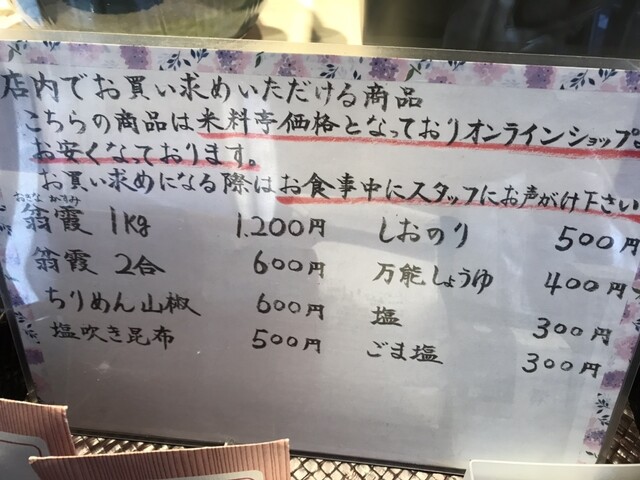 店内でお買い求めいただける商品
こちらの商品は米料亭価格となっておりオンラインショップ
お安くなっております。
お買い求めになる際はお食事中にスタッフにお声がけ下さい
おきな がすみ
翁霞 1kg 1.200円 しおのり 500円
翁霞 2合 600円 万能しょうゆ 400円
ちりめん山椒 600円 塩 300円
塩吹き昆布 500円 ごま塩 300円